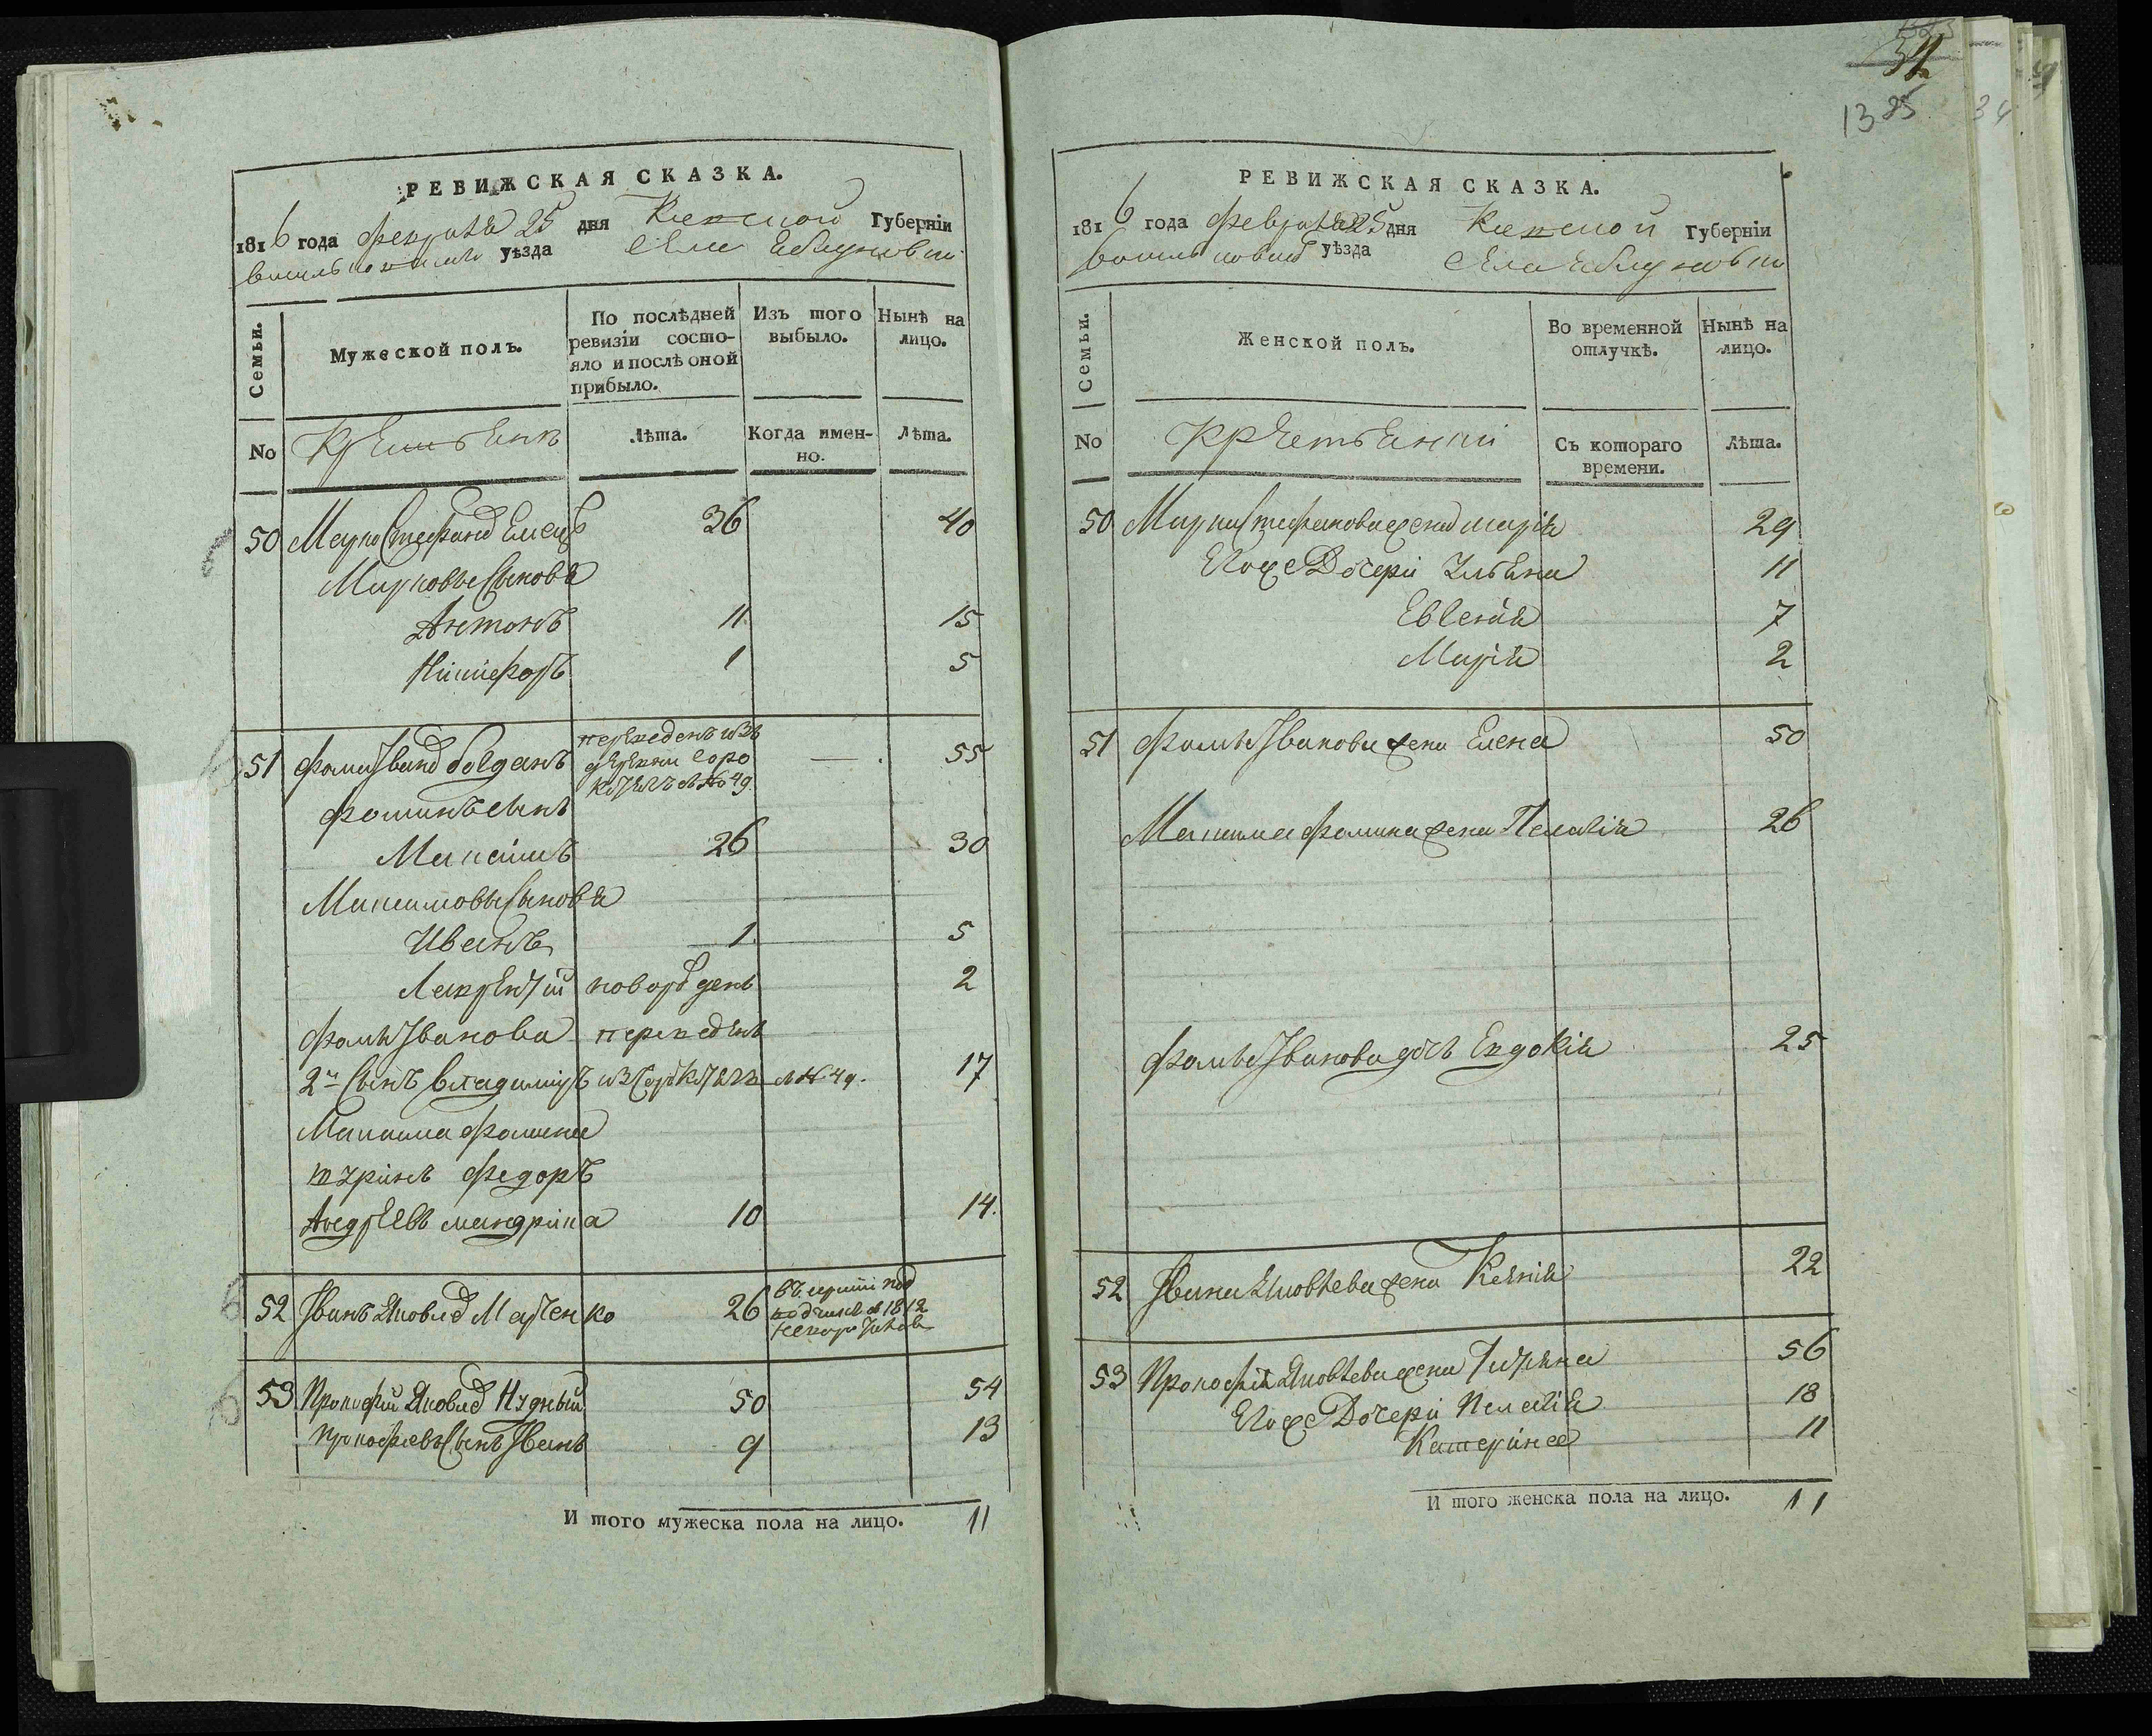 РЕВИЖСКАЯ СКАЗКА.
1816 года февраля 25 дня Киевской Губерніи
васильковского уѣзда села Яблуновки
Семьи.
Мужеской полъ.
По послѣдней ревизіи состо-
яло и послѣ оной прибыло.
Изъ того выбыло.
Нынѣ на лицо.
No
Крестьяне
Лѣта.
Когда имен-
но.
Лѣта.
50 Марко Стефановъ 36 40
Марковы Сыновья
Антонъ 11 15
Никифоръ 1 5
51 Фома Ивановъ Богданъ переведенъ изъ деревни Соро No 49 — 55
Фоминъ Сынъ
Максимъ 26 30
Максимовы Сыновья
Иванъ 1 5
Лаврентій новорожденъ 2
Фомы Иванова переведенъ
2й Сынъ Владимиръ изъ No 49. 17
Максима Фомина
шуринъ Федоръ
Андреевъ мандрика 10 14.
52 Иванъ Яковлевъ Марченко 26 въ 1812
53 Прокофій Яковлевъ Нудный 50 54
Прокофіевъ Сынъ Иванъ 9 13
И того мужеска пола на лицо. 11
34
1385
РЕВИЖСКАЯ СКАЗКА.
1816 года февраля 25 дня Киевской Губерніи
васильковского уѣзда Села Яблуновки
Семьи.
Женской полъ.
Во временной отлучкѣ.
Нынѣ на лицо.
No
Крестьянки
Съ котораго времени.
Лѣта.
50 Марка Стефанова жена Марія 29
Егоже Дочери Ульяна 11
Евгенія 7
Марія 2
51 Фомы Иванова жена Елена 50
Максима Фомина жена Пелагія 26
Фомы Иванова дочь Евдокія 25
52 Ивана Яковлева жена Ксенія 22
53 Прокофія Яковлева жена Татьяна 56
Егоже Дочери Пелагія 18
Катерина 11
И того женска пола на лицо. 11